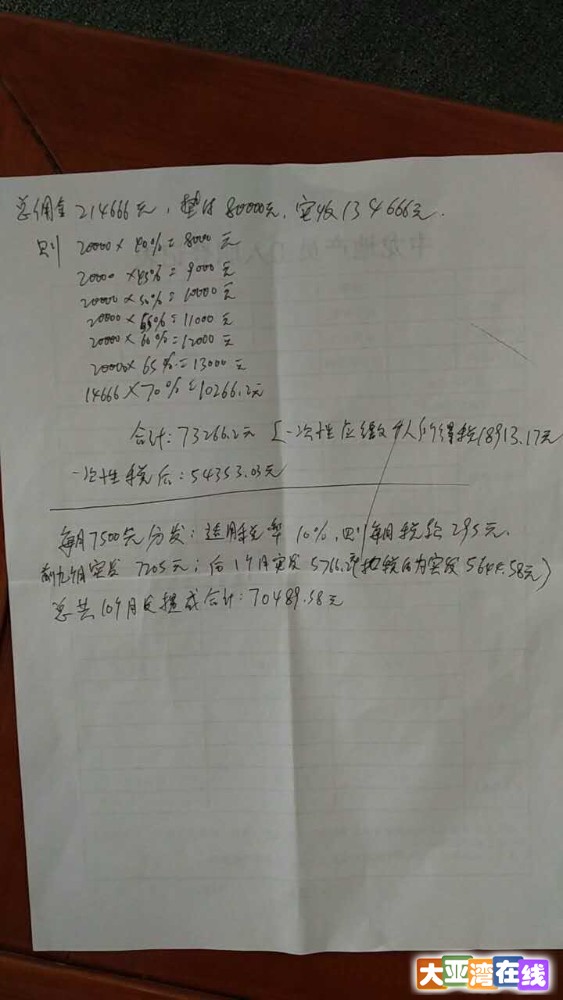 总佣金214666元,垫付80000元,实收134666元.
则 20000×40%=8000元
20000×45%=9000元
20000×50%=10000元
20000×55%=11000元
20000×60%=12000元
20000×65%=13000元
14666×70%=10266.2元
合计:73266.2元 [一次性应缴个人所得税18913.17元
一次性税后:54353.03元
每月7500元分发:适用税率10%,则每月税给295元.
前九个月实发7205元;后1个月实发5766.2 扣税后为实发5644.58元)
总共10个月发提成合计:70489.58元
大亚湾在线